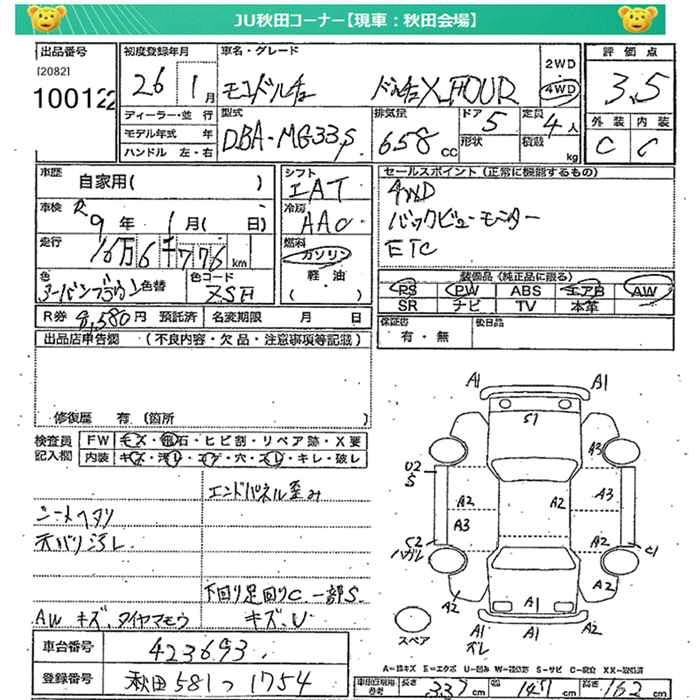 JU秋田コーナー【現車：秋田会場】
出品番号
[2082]
100122
初度登録年月
26 1月
車名・グレード
モコドルチェ ドルチェX FOUR
2WD
4WD
評価点
3.5
外装 内装
C C
ディーラー・並行
モデル年式 年
ハンドル 左・右
型式
DBA-MG33S
排気量
658 cc
ドア 5
形状
定員 4人
積載 kg
車歴
自家用( )
車検
R9年 1月( 日)
走行
16万6千776 km
色
アーバンブラウン 色替
色コード
シフト
IAT
冷房
AAC
燃料
ガソリン
軽・油
( )
セールスポイント(正常に機能するもの)
4WD
バックビューモニター
ETC
装備品(純正品に限る)
PS PW ABS エアB AW
SR ナビ TV 本革
R券 8,580円 預託済 名変期限 月 日
保証書
有・無
後日品
出品店申告欄 (不良内容・欠品・注意事項等記載)
修復歴 有(箇所 )
検査員記入欄
FW キズ・飛石・ヒビ割・リペア跡・X要
内装 キズ・汚レ・コゲ・穴・スレ・キレ・破レ
エンドパネル歪み
シートヘタリ
天バリ汚レ
下回り足回りC 一部S
AW キズ、タイヤマモウ キズ、U
車台番号
423693
登録番号
秋田581つ1754
A1 A1
S1
A3
U2
S
A2 A2 A3
A3
C2
ハガレ
A2 C1
A2 A1 A2
A1 A1
ズレ
スペア
A=線キズ E=エクボ U=凹み W=波凹跡 S=サビ C=腐食 XX=交換済
参考
長さ 337 幅 147 高さ 162 cm